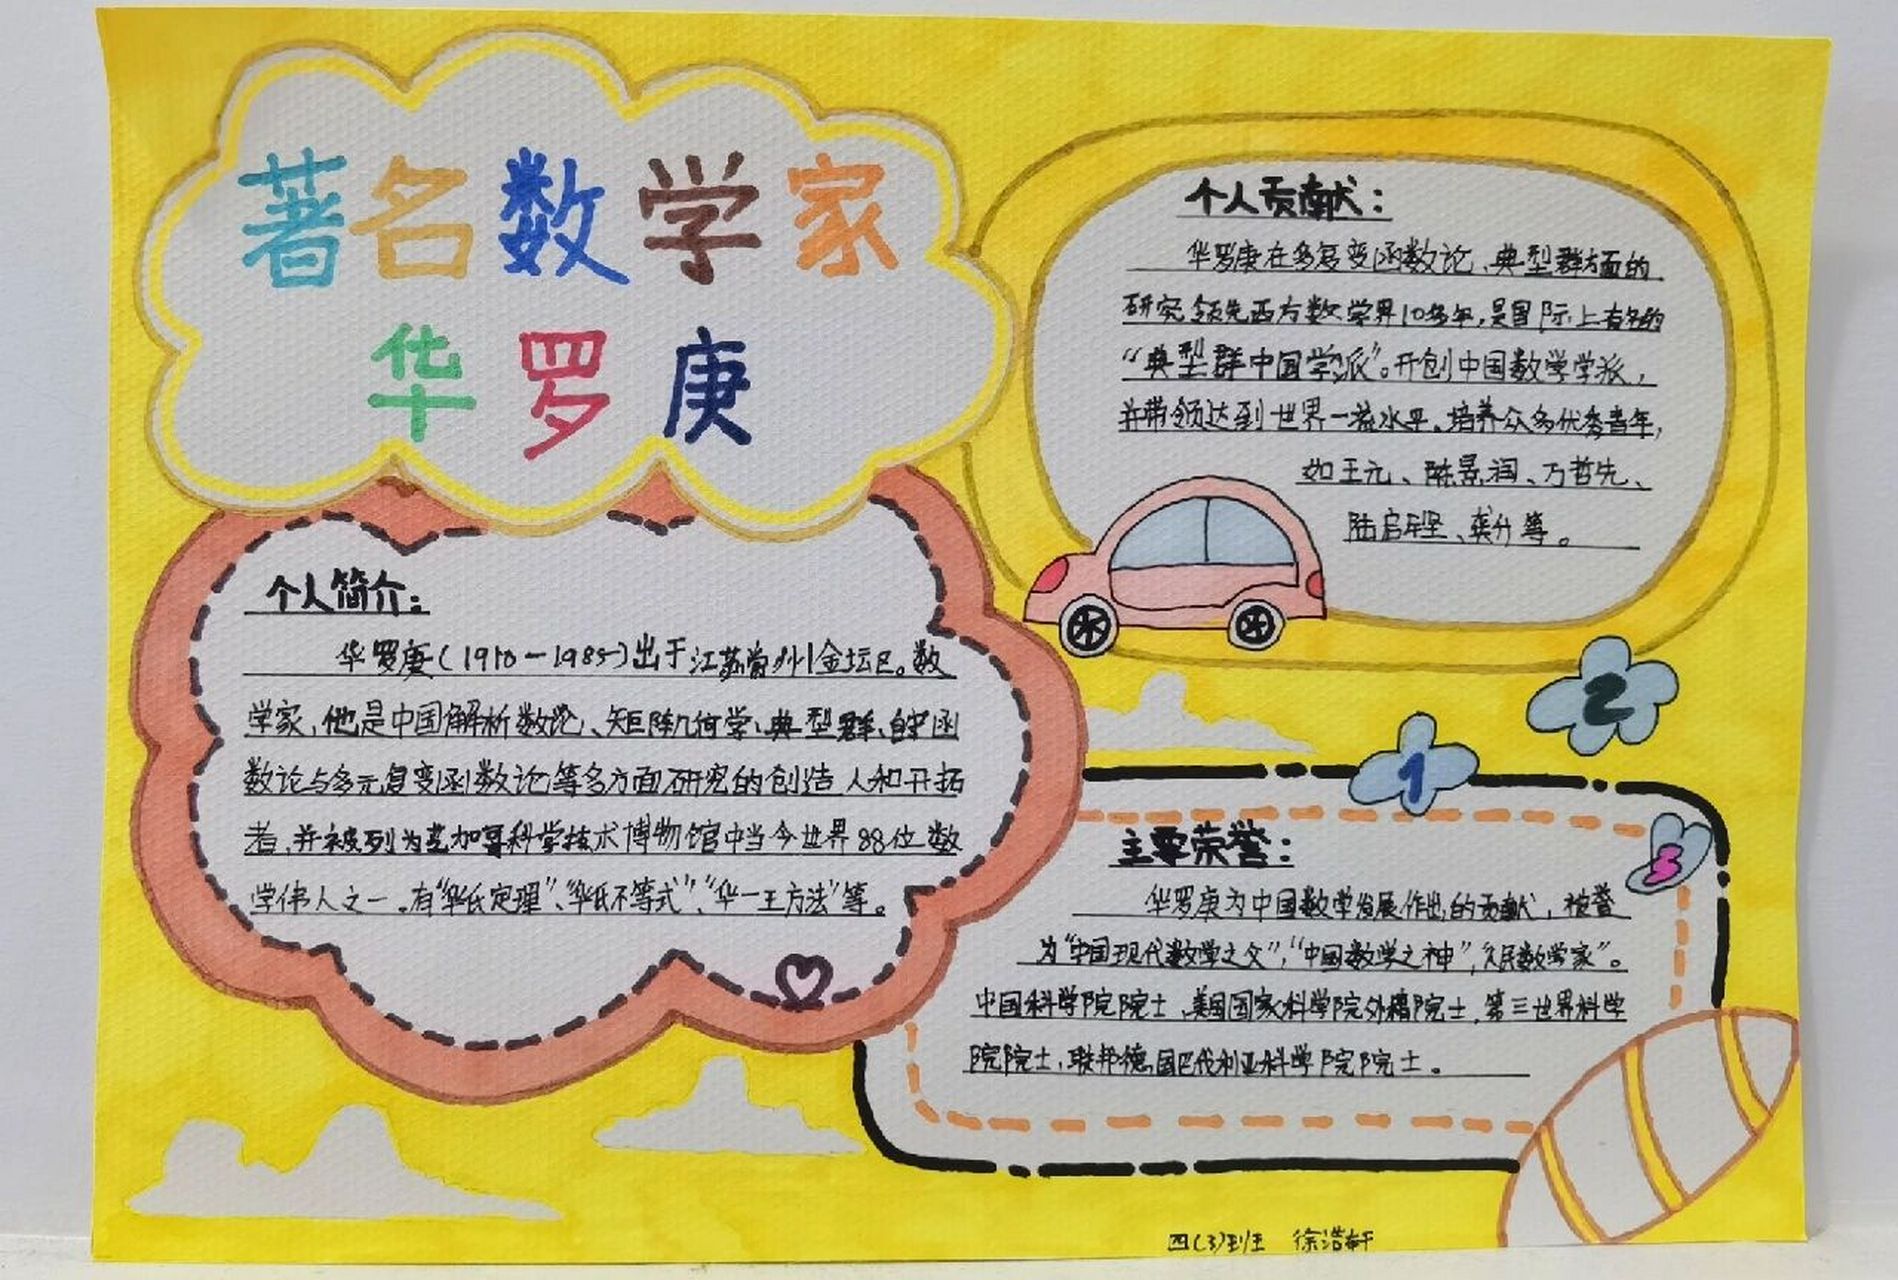 著名数学家
华罗庚
个人简介:
华罗庚(1910-1985)出于江苏常州金坛区。数
学家,他是中国解析数论、矩阵几何学、典型群、自守函
数论与多元复变函数论等多方面研究的创造人和开拓
者,并被列为芝加哥科学技术博物馆中当今世界88位数
学伟人之一。有“华氏定理”、“华氏不等式”、“华一王方法”等。
个人贡献:
华罗庚在多复变函数论、典型群方面的
研究领先西方数学界10多年,是国际上有名的
“典型群中国学派”。开创中国数学学派,
并带领达到世界一流水平。培养众多优秀青年,
如王元、陈景润、万哲先、
陆启铿、龚升等。
1
2
3
主要荣誉:
华罗庚为中国数学发展作出的贡献,被誉
为“中国现代数学之父”,“中国数学之神”,“人民数学家”。
中国科学院院士,美国国家科学院外籍院士,第三世界科学
院院士,联邦德国巴伐利亚科学院院士。
四(3)班 徐浩轩